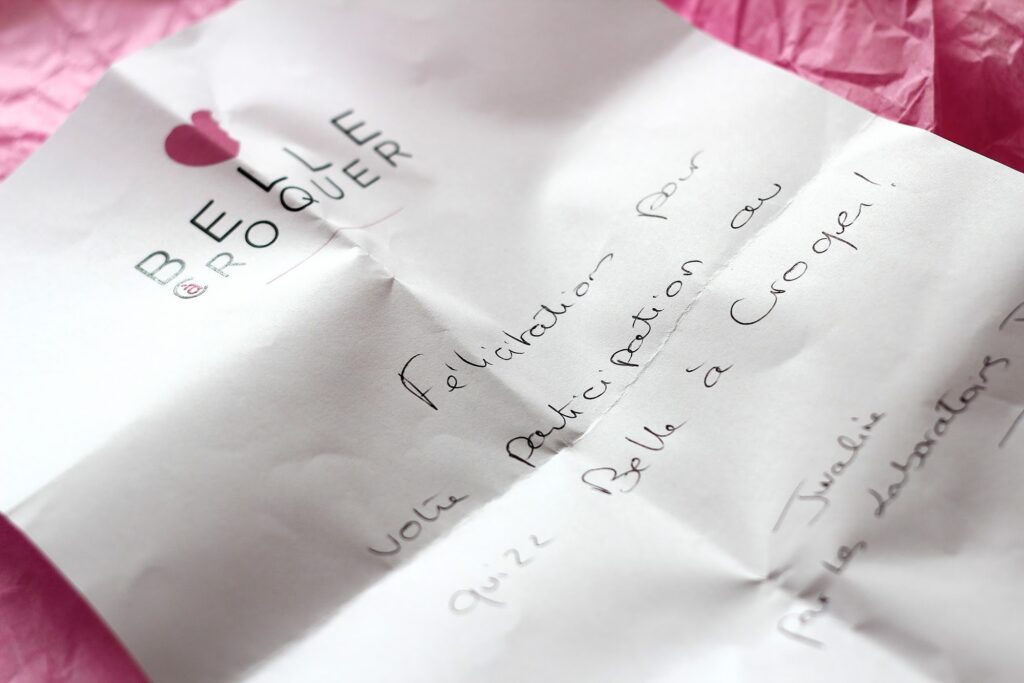 BELLE
à CROQUER
Félicitation pour
votre participation au
quizz Belle à Croquer!
Jwaline
par les Laboratoires